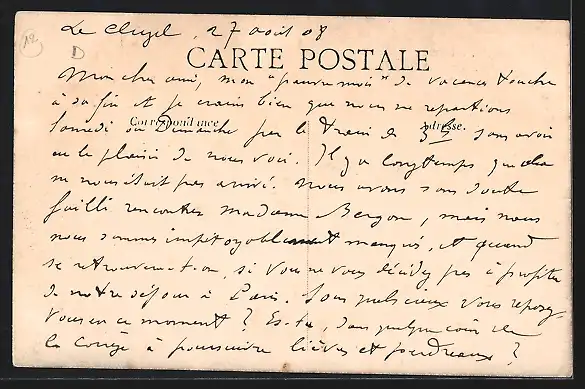 12
Le Cluzel, 27 août 08
D
CARTE POSTALE
Mon cher ami, mon "pauvre mois" de vacances touche
à sa fin et je crains bien que nous ne repartions
Correspondance
Adresse.
samedi ou Dimanche par le train de sans avoir
eu le plaisir de vous voir. Il y a longtemps que cela
ne nous était pas arrivé. Nous avons sans doute
failli rencontrer Madame Bergon, mais nous
nous sommes impitoyablement manqués, et quand
se retrouvera-t-on, si vous ne vous décidez pas à profiter
de notre séjour à Paris. Sous quels cieux vous reposez
vous en ce moment ? Es-tu, dans quelque coin de
la Corrèze à poursuivre lièvres et perdreaux ?